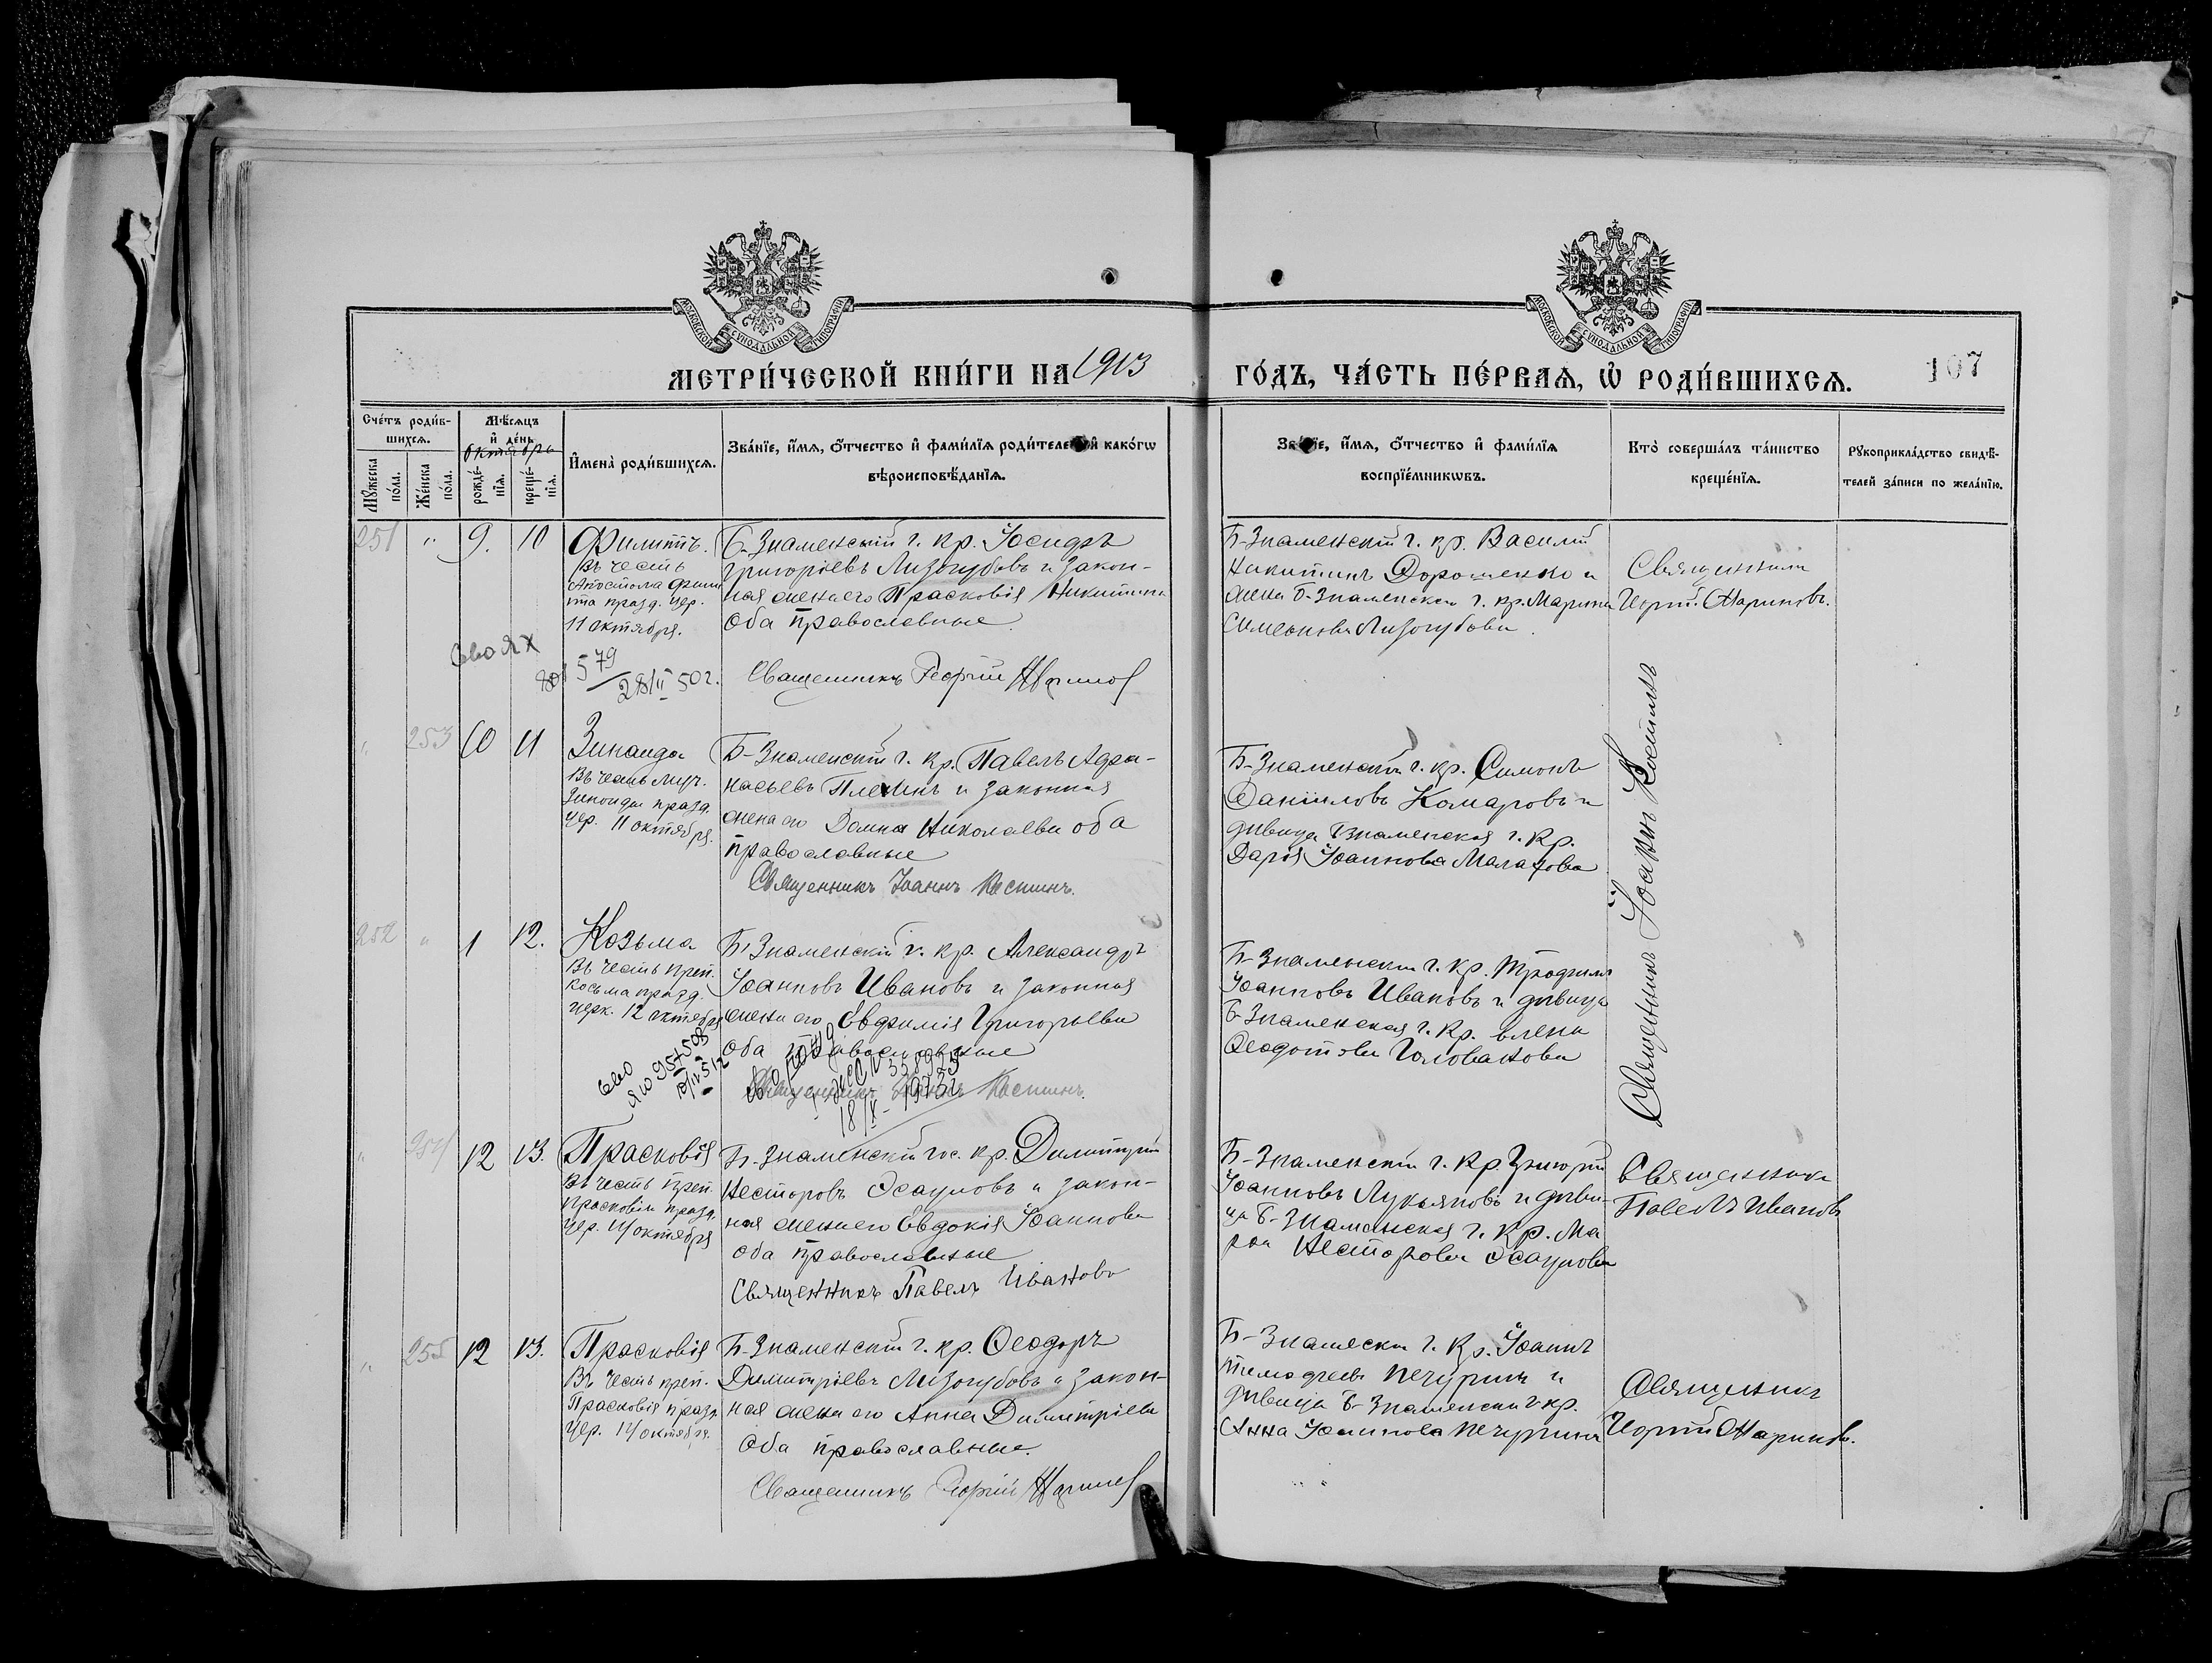 МОСКОВСКОЙ СѴНОДАЛЬНОЙ ТИПОГРАФІИ
МОСКОВСКОЙ СѴНОДАЛЬНОЙ ТИПОГРАФІИ
МЕТРИ́ЧЕСКОЙ КНИ́ГИ НА 1913
ГО́ДЪ, ЧА́СТЬ ПЕ́РВАѦ, Ѡ҆ РОДИ́ВШИХСѦ.
107
Сче́тъ роди́в-
шихсѧ.
Мꙋ́жеска по́ла.
Же́нска по́ла.
Мѣ́сѧцъ
и҆ де́нь
октябрь
рожде́-
нїѧ.
креще́-
нїѧ.
И҆мена̀ роди́вшихсѧ.
Зва́нїе, и҆́мѧ, ѻ҆́тчество и҆ фами́лїѧ роди́телей и҆ како́гѡ
вѣроисповѣ́данїѧ.
Зва́нїе, и҆́мѧ, ѻ҆́тчество и҆ фами́лїѧ
воспрїе́мникѡвъ.
Кто̀ соверша́лъ та́инство
креще́нїѧ.
Рꙋкоприкла́дство свидѣ́-
телей за́писи по жела́нїю.
251 " 9. 10
Филиппъ.
Въ честь
Апостола Филип
па празд. цер.
11 октября.
Б-Знаменский г. кр. Іосифъ
Григоріевъ Лизогубовъ и закон-
ная жена его Прасковія Никитина
Оба православные.
Священникъ Георгій Маринов
579
28/II 50 г.
Б-Знаменскій г. кр. Василій
Никитинъ Дорошенко и
жена Б-Знаменскаго г. кр. Марина
Симеонова Лизогубова.
Священникъ
Георгій Мариновъ.
" 253 10 11
Зинаида
Въ честь муч.
Зинаиды празд.
цер. 11 октября.
Б-Знаменскій г. кр. Павелъ Афа-
насьевъ Плехинъ и законная
жена его Домна Николаева оба
православные
Священникъ Іоаннъ Костинъ.
Б-Знаменскій г. кр. Симонъ
Даніиловъ Комаровъ и
дѣвица Б-Знаменская г. кр.
Дарія Іоаннова Малахова
Священникъ Іоаннъ Костинъ
252 " 1 12.
Козьма
Въ честь преп.
Косьма празд.
церк. 12 октября
Б-Знаменскій г. кр. Александръ
Іоанновъ Ивановъ и законная
жена его Евфимія Григорьева
Оба православные
Священникъ Іоаннъ Костинъ.
Б-Знаменскій г. кр. Трофимъ
Іоанновъ Ивановъ и дѣвица
Б-Знаменская г. кр. Елена
Ѳеодотова Голованова
" 254 12 13.
Прасковія
Въ честь преп.
Прасковіи празд.
цер. 14 октября
Б-Знаменскій гос. кр. Димитрій
Несторовъ Эсауловъ и закон-
ная жена его Евдокія Іоаннова
Оба православные
Священникъ Павелъ Ивановъ
Б-Знаменскій г. кр. Григорій
Іоанновъ Лукьяновъ и дѣви-
ца Б-Знаменская г. кр. Ма
рѳа Несторова Эсаулова
Священникъ
Павелъ Ивановъ
" 255 12 13.
Прасковія
Въ честь преп.
Прасковія празд.
цер. 14 октября.
Б-Знаменскій г. кр. Ѳеодоръ
Димитріевъ Лизогубовъ и закон-
ная жена его Анна Димитріева
Оба православные.
Священникъ Георгій Маринов
Б-Знаменскій г. кр. Іоаннъ
Тимофеевъ Печуринъ и
дѣвица Б-Знаменская г. кр.
Анна Іоаннова Печурина
Священникъ
Георгій Мариновъ.